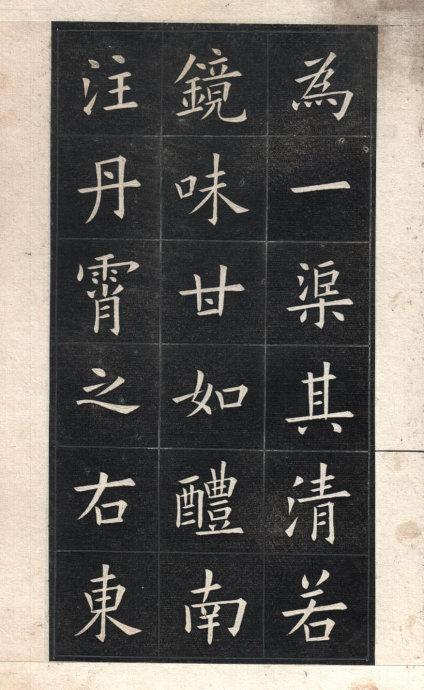 為一渠其清若
鏡味甘如醴南
注丹霄之右東